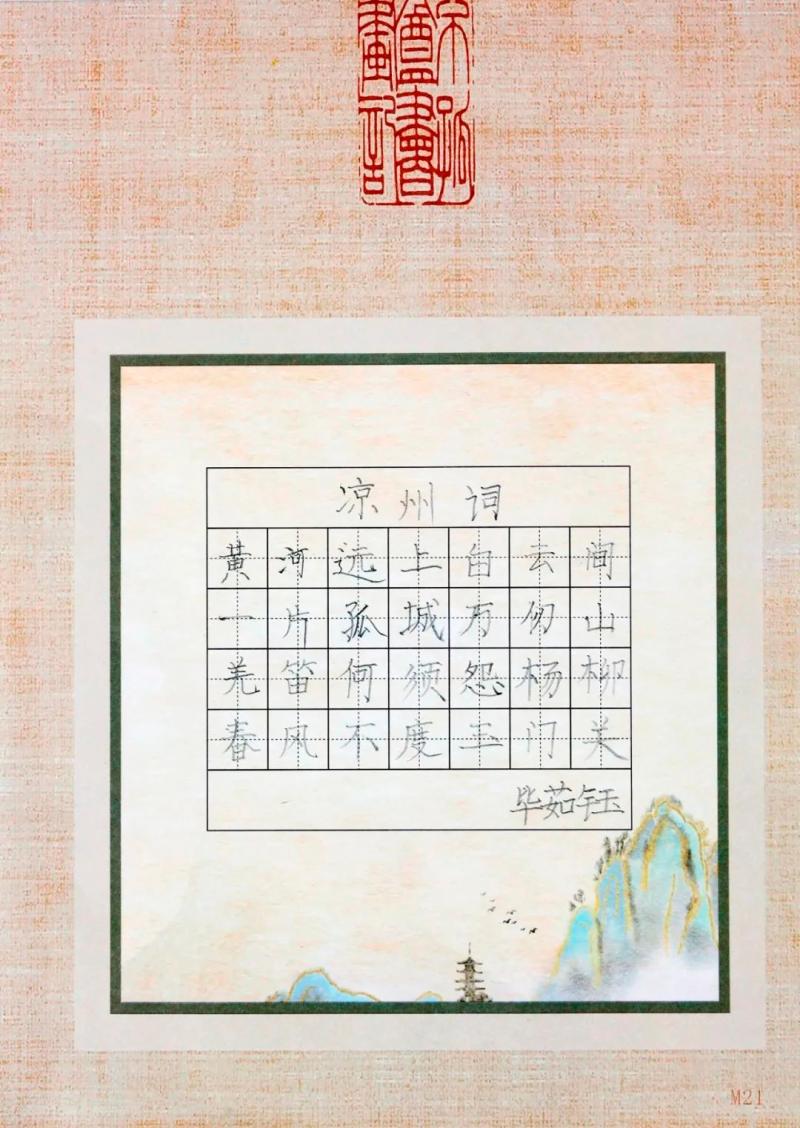 凉州词
黄河远上白云间
一片孤城万仞山
羌笛何须怨杨柳
春风不度玉门关
毕茹钰
M21